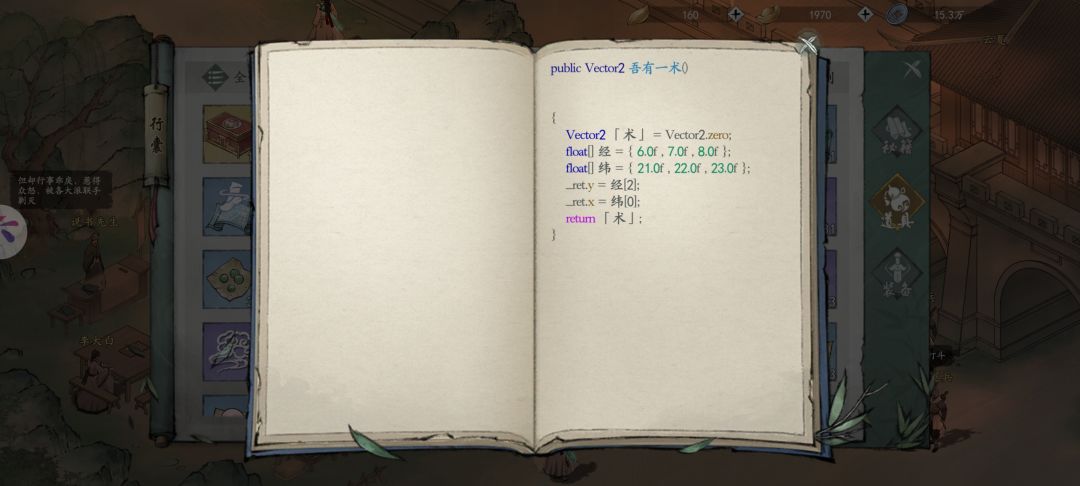 160
1970
15.3万
云
全
行囊
但却行事乖戾,惹得
众怒,被各大派联手
剿灭
说书先生
李大白
public Vector2 吾有一术()
{
Vector2 「术」 = Vector2.zero;
float[] 经 = { 6.0f , 7.0f , 8.0f };
float[] 纬 = { 21.0f , 22.0f , 23.0f };
_ret.y = 经[2];
_ret.x = 纬[0];
return 「术」;
}
秘籍
道具
装备